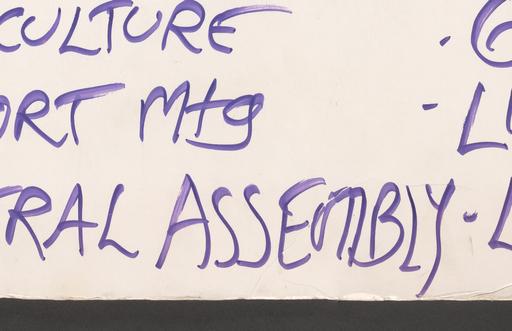 CULTURE
ORT Mtg - L
TRAL ASSEMBLY - L